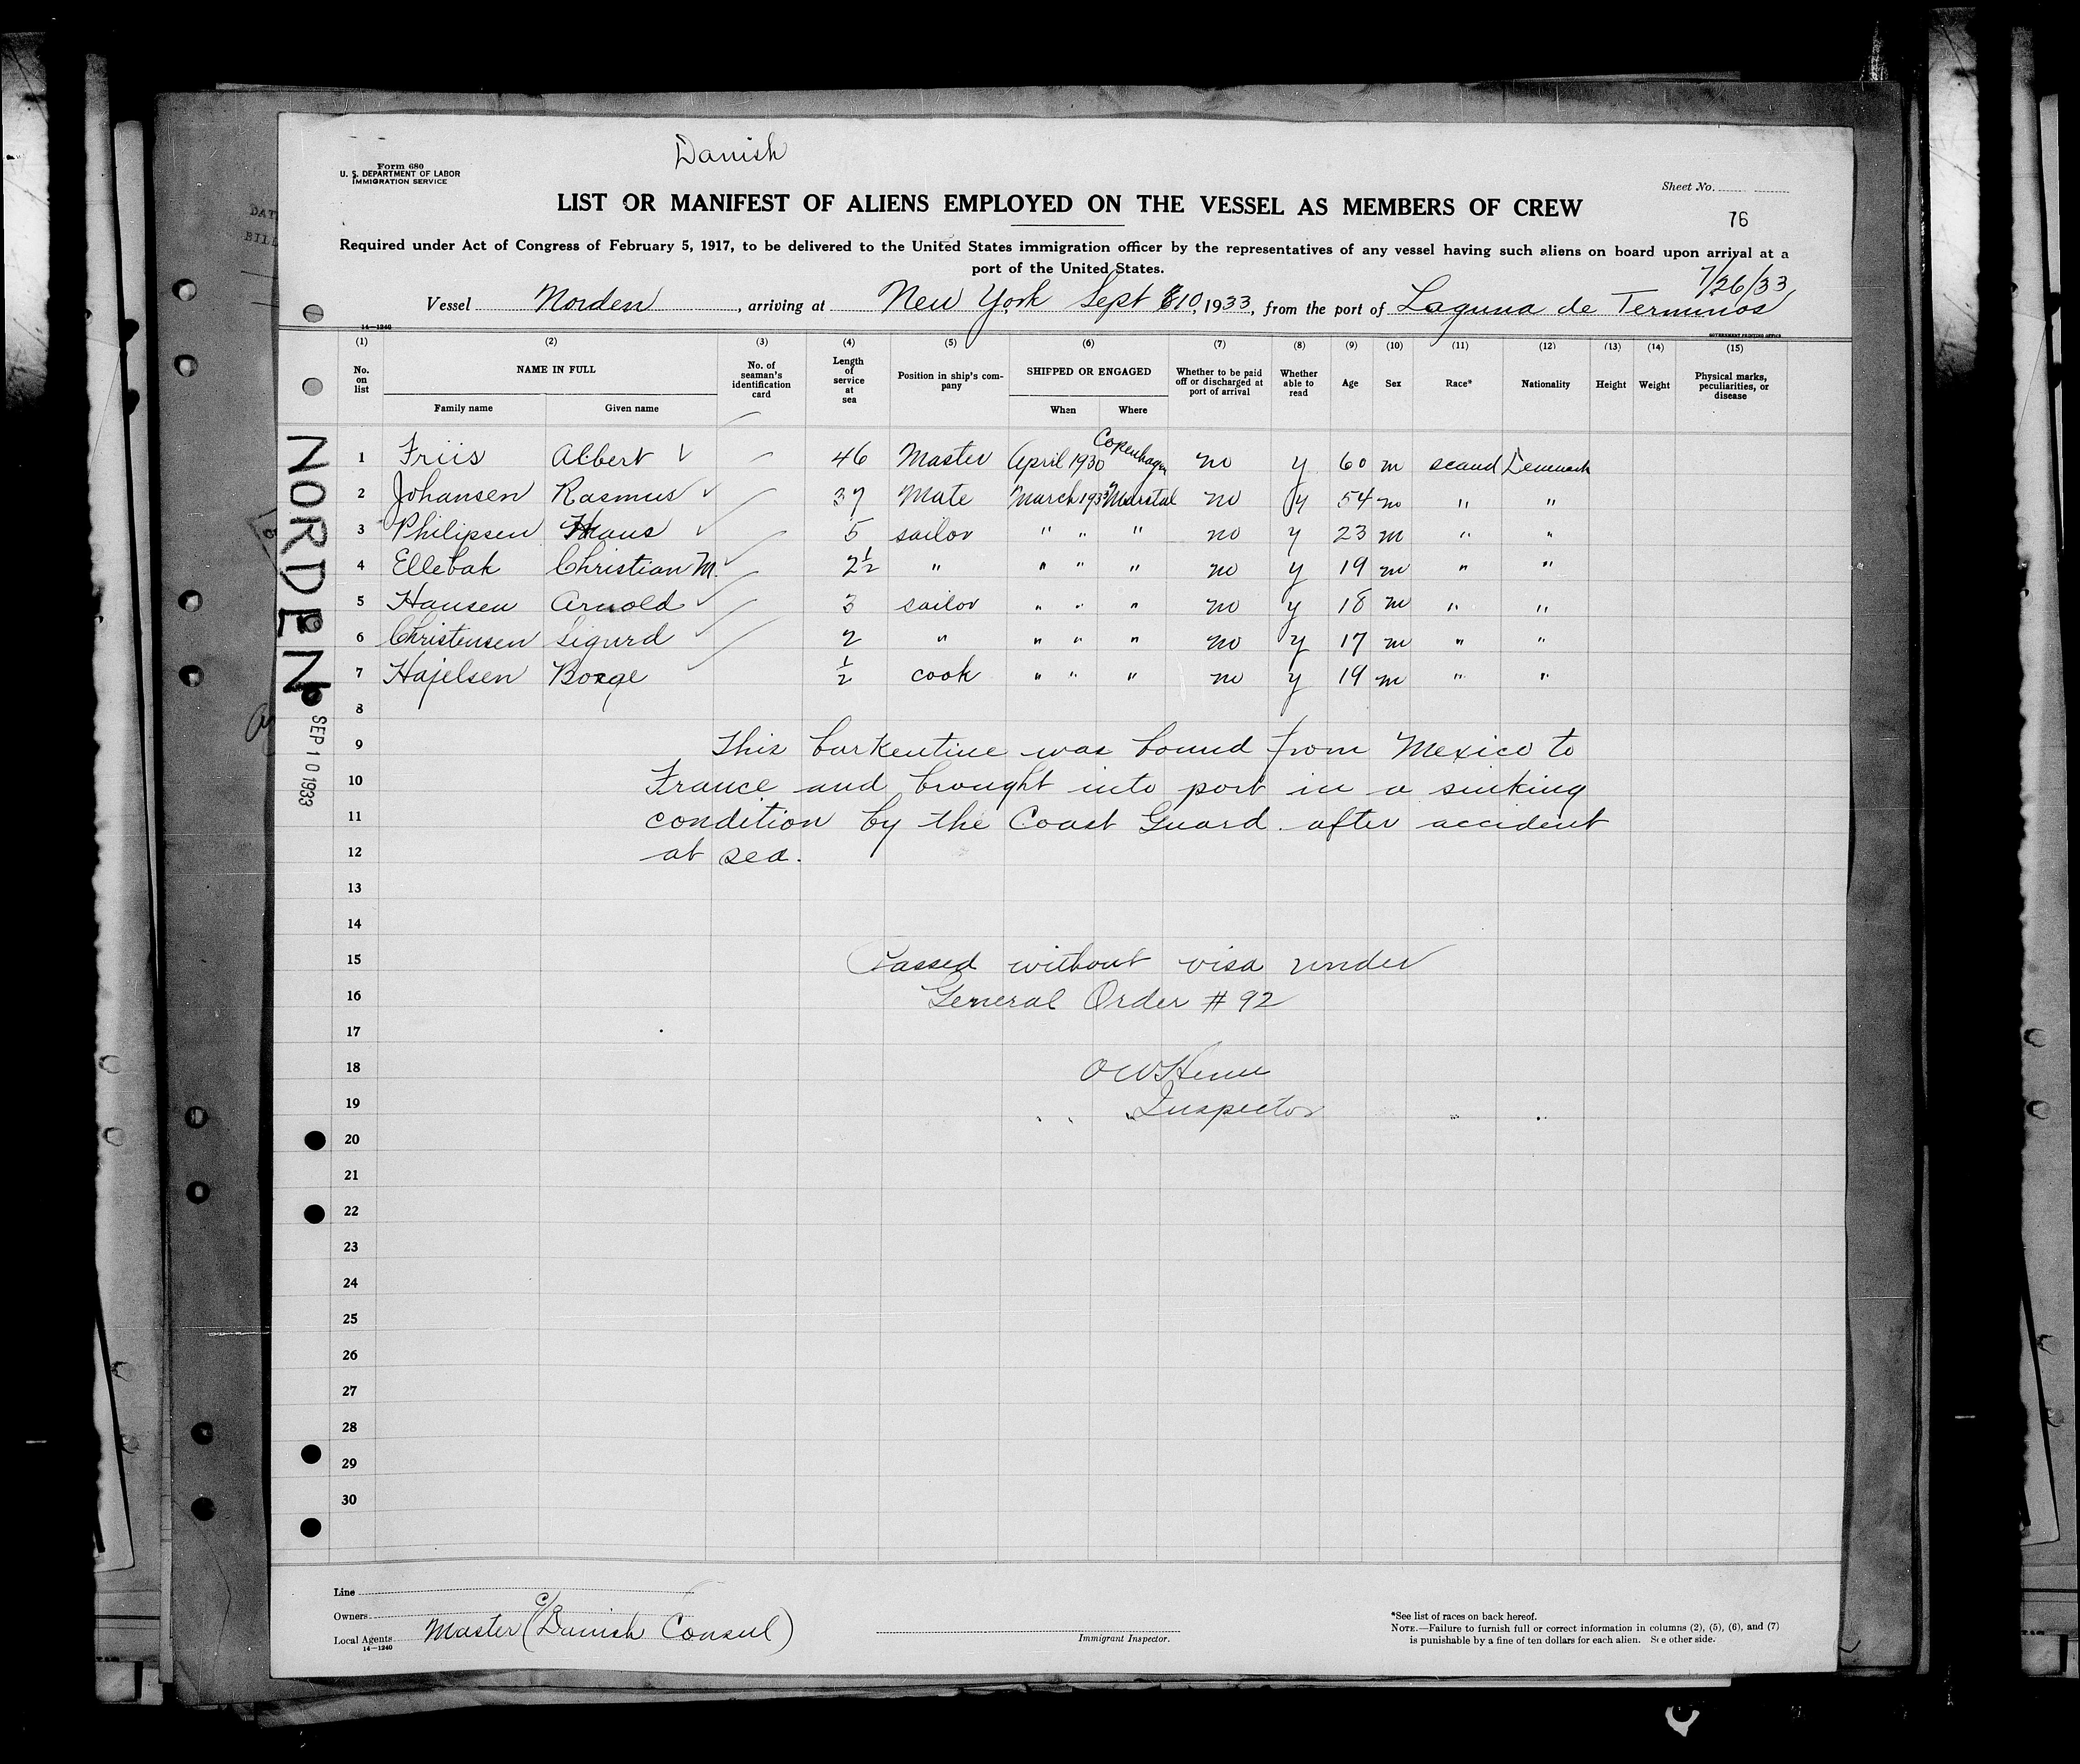 Danish
Form 680
U. S. DEPARTMENT OF LABOR
IMMIGRATION SERVICE
Sheet No.
LIST OR MANIFEST OF ALIENS EMPLOYED ON THE VESSEL AS MEMBERS OF CREW
76
Required under Act of Congress of February 5, 1917, to be delivered to the United States immigration officer by the representatives of any vessel having such aliens on board upon arrival at a
port of the United States.
7/26/33
Vessel Norden, arriving at New York Sept 10, 1933, from the port of Laguna de Terminos
14—1240
GOVERNMENT PRINTING OFFICE
(1) (2) (3) (4) (5) (6) (7) (8) (9) (10) (11) (12) (13) (14) (15)
No. on list NAME IN FULL Family name Given name No. of seaman's identification card Length of service at sea Position in ship's company SHIPPED OR ENGAGED When Where Whether to be paid off or discharged at port of arrival Whether able to read Age Sex Race* Nationality Height Weight Physical marks, peculiarities, or disease
1 Friis Albert √ 46 Master April 1930 Copenhagen no y 60 m scand Denmark
2 Johansen Rasmus √ 37 Mate March 1933 Marstal no y 54 m " "
3 Philipsen Hans √ 5 sailor " " " no y 23 m " "
4 Ellebak Christian M. √ 2½ " " " " no y 19 m " "
5 Hansen Arnold √ 3 sailor " " " no y 18 m " "
6 Christensen Sigurd √ 2 " " " " no y 17 m " "
7 Hajelsen Borge √ ½ cook " " " no y 19 m " "
8
9 This barkentine was bound from Mexico to
10 France and brought into port in a sinking
11 condition by the Coast Guard after accident
12 at sea.
13
14
15 Passed without visa under
16 General Order # 92
17
18 O W
19 Inspector
20
21
22
23
24
25
26
27
28
29
30
NORDEN
SEP 10 1933
Line
Owners
Local Agents Master (c/o Danish Consul)
14—1240
Immigrant Inspector.
*See list of races on back hereof.
NOTE.—Failure to furnish full or correct information in columns (2), (5), (6), and (7)
is punishable by a fine of ten dollars for each alien. See other side.